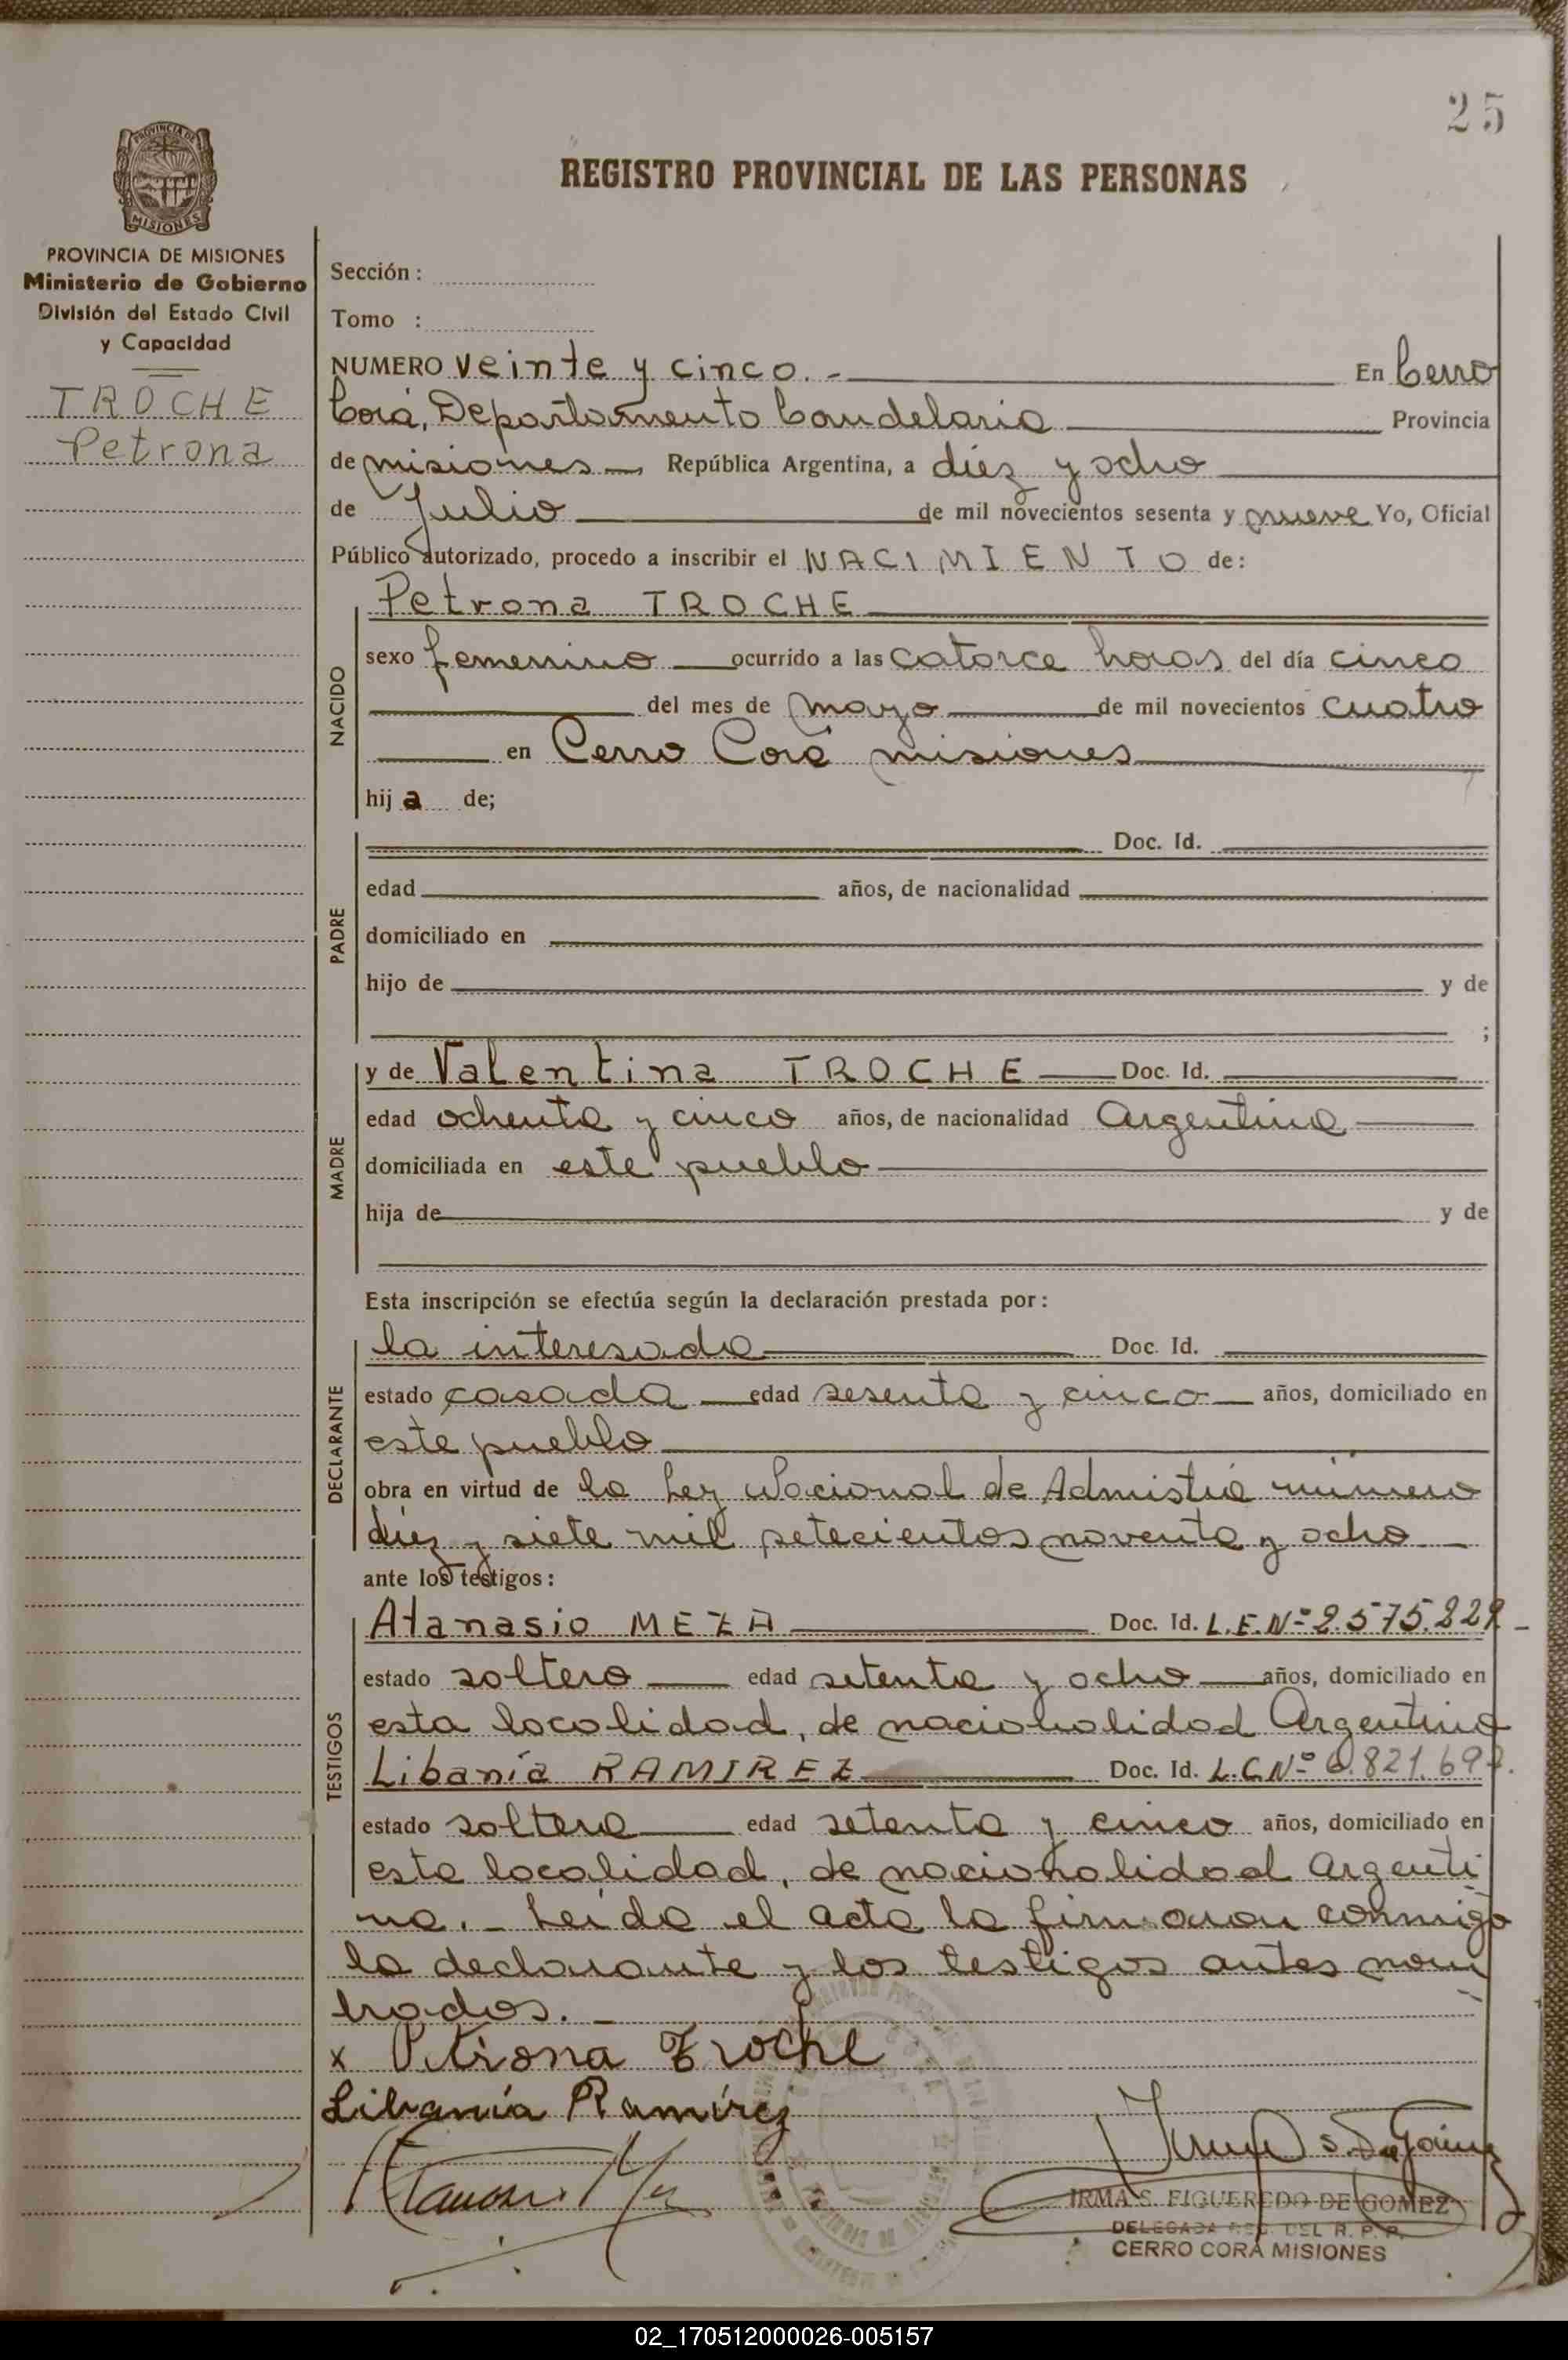 25
REGISTRO PROVINCIAL DE LAS PERSONAS
PROVINCIA DE MISIONES
PROVINCIA DE MISIONES
Ministerio de Gobierno
División del Estado Civil
y Capacidad
TROCHE
Petrona
Sección :
Tomo :
NUMERO veinte y cinco. - En Cerro
Corá, Departamento Candelaria Provincia
de misiones, República Argentina, a diez y ocho
de Julio de mil novecientos sesenta y nueve Yo, Oficial
Público autorizado, procedo a inscribir el NACIMIENTO de:
NACIDO
Petrona TROCHE
sexo femenino ocurrido a las catorce horas del día cinco
del mes de mayo de mil novecientos cuatro
en Cerro Corá misiones
hij a de;
PADRE
Doc. Id.
edad años, de nacionalidad
domiciliado en
hijo de y de
;
MADRE
y de Valentina TROCHE Doc. Id.
edad ochenta y cinco años, de nacionalidad Argentina
domiciliada en este pueblo
hija de y de
Esta inscripción se efectúa según la declaración prestada por:
DECLARANTE
la interesada Doc. Id.
estado casada edad sesenta y cinco años, domiciliado en
este pueblo
obra en virtud de la Ley Nacional de Admistía número
diez y siete mil setecientos noventa y ocho
ante los testigos:
TESTIGOS
Atanasio MEZA Doc. Id. L.E.Nº 2.575.229 -
estado soltero edad setenta y ocho años, domiciliado en
esta localidad, de nacionalidad Argentina
Libania RAMIREZ Doc. Id. L.C.Nº
estado soltera edad setenta y cinco años, domiciliado en
esta localidad, de nacionalidad Argenti
na. - Leída el acta la firmaron conmigo
la declarante y los testigos antes nom
brados. -
x Petrona Troche
Libania Ramírez
IRMA S. FIGUEREDO DE GOMEZ
DELEGADA DEL R. P. P.
CERRO CORÁ MISIONES
02_170512000026-005157